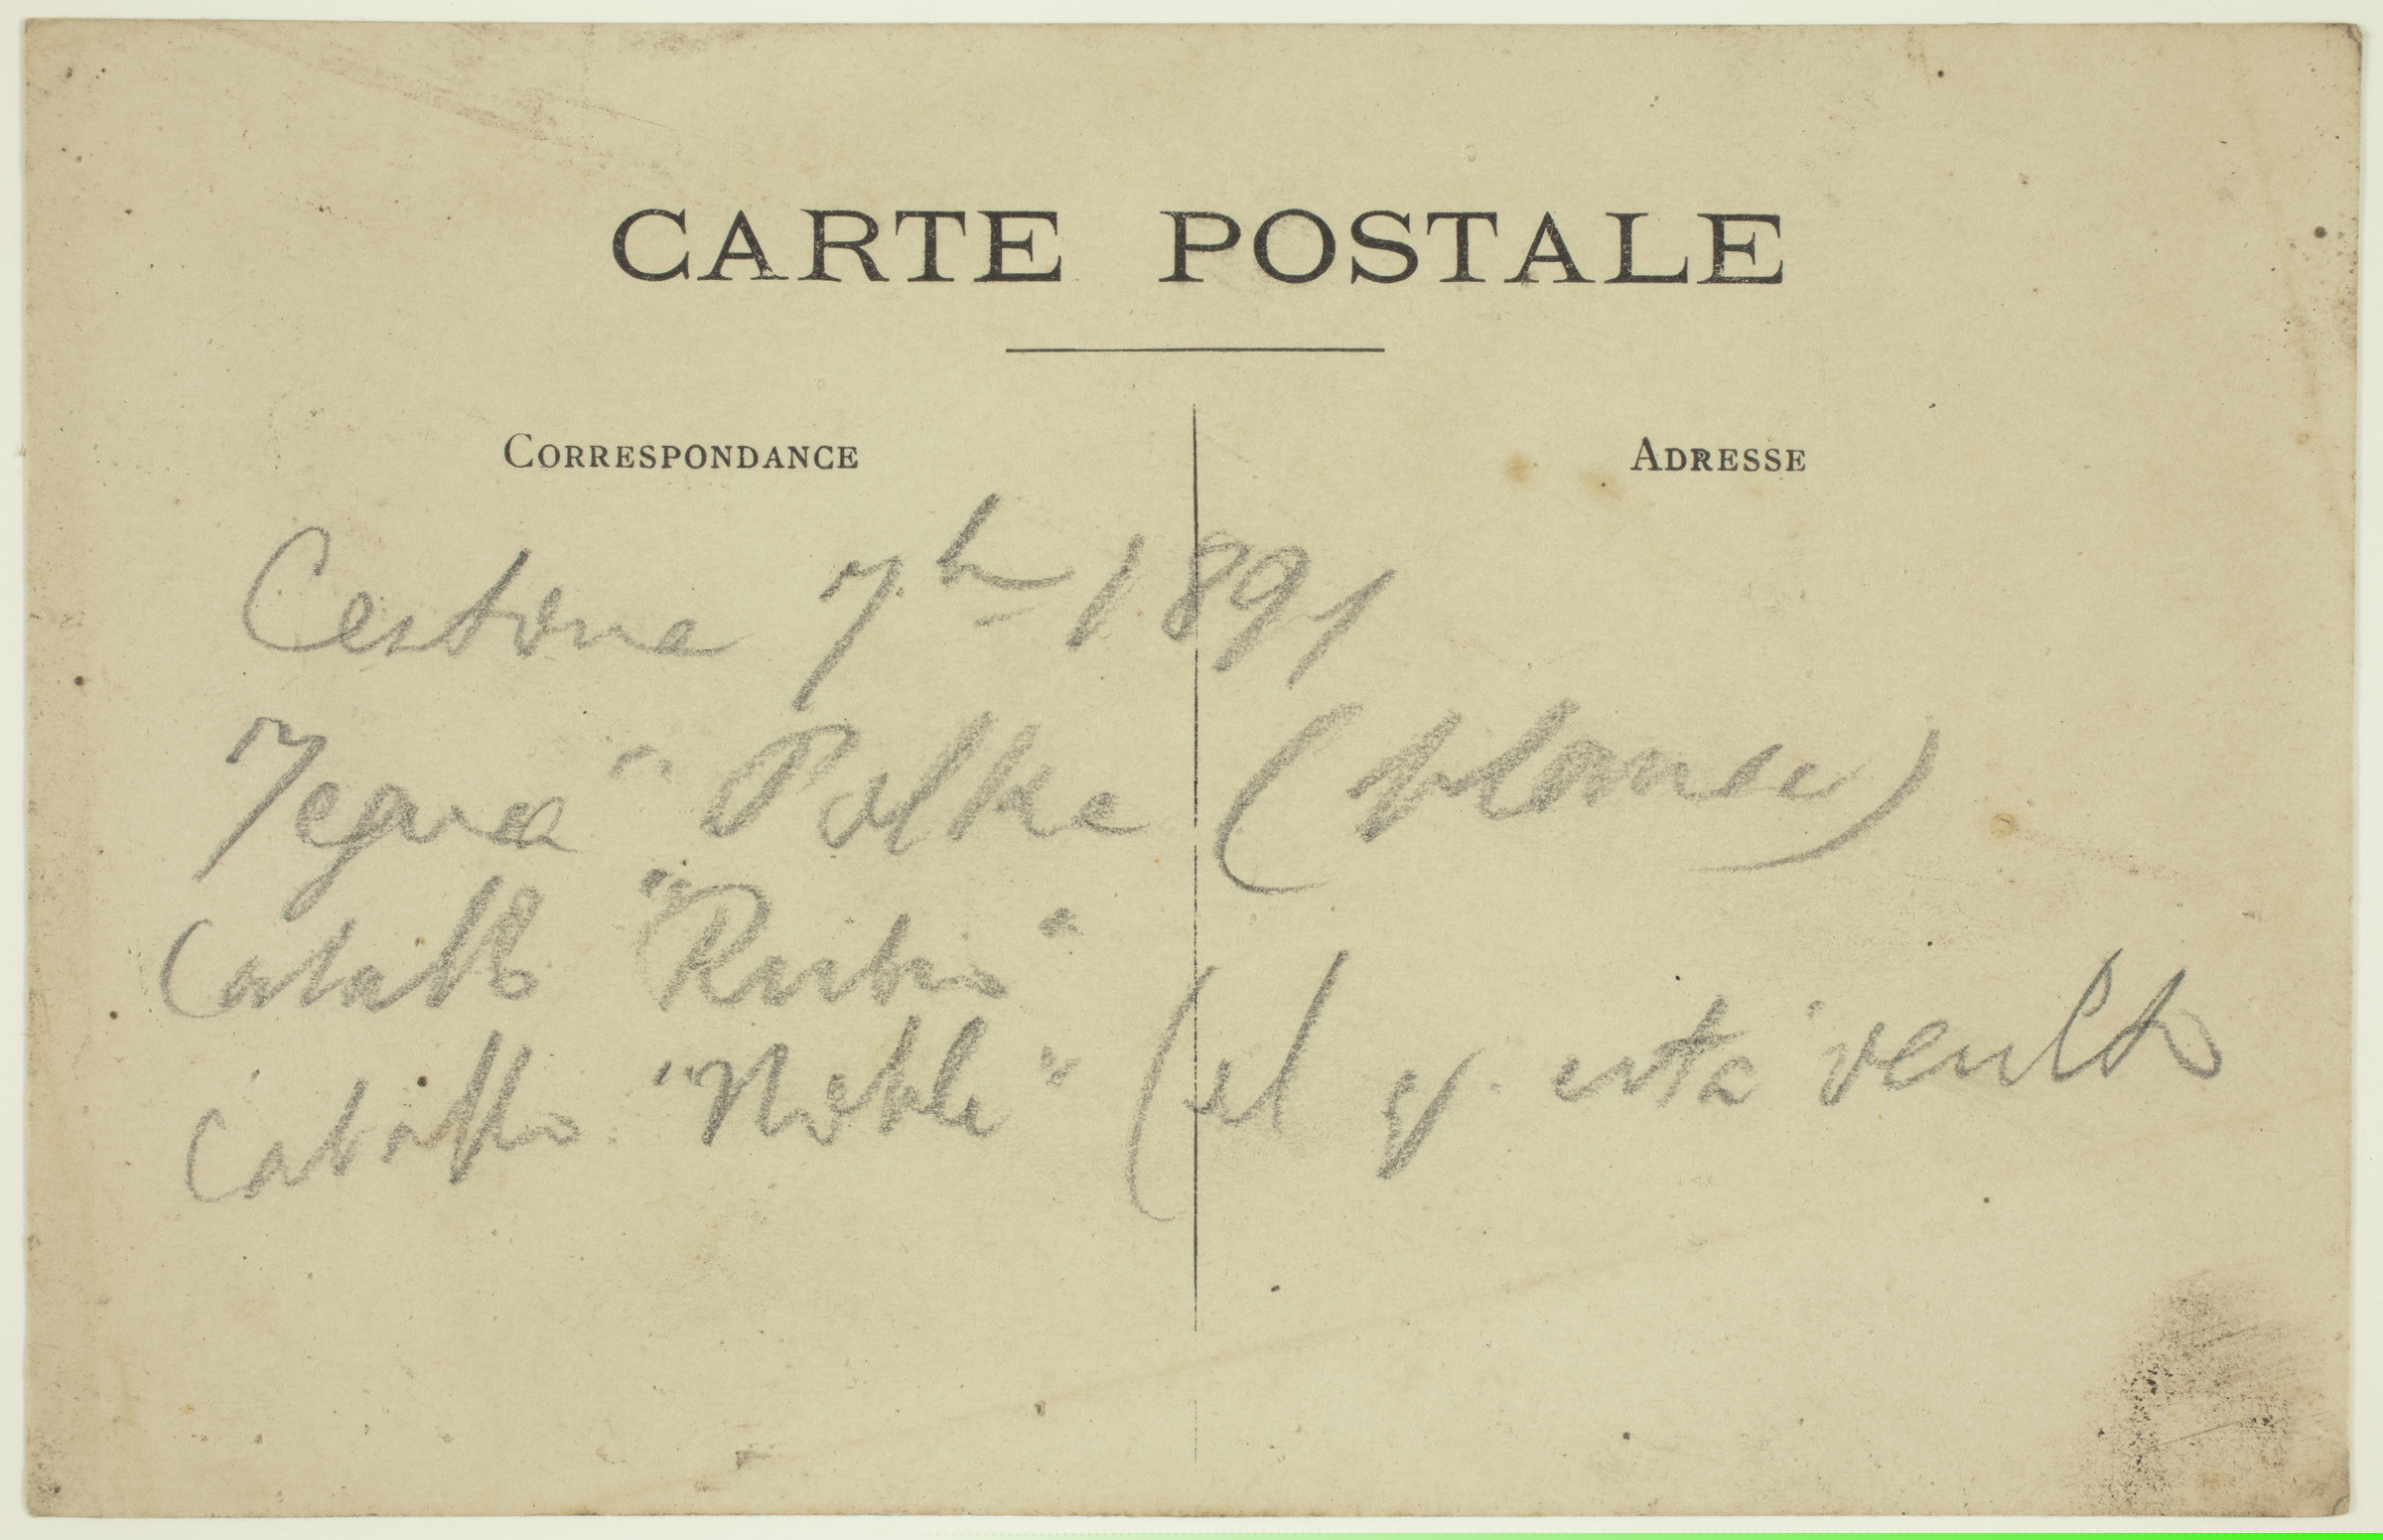 CARTE POSTALE
CORRESPONDANCE
ADRESSE
Cestona 7bre 1891
Yegua "Polka (blanca)
Caballo "Rubio"
Caballo "Noble" (el q. esta vuelto